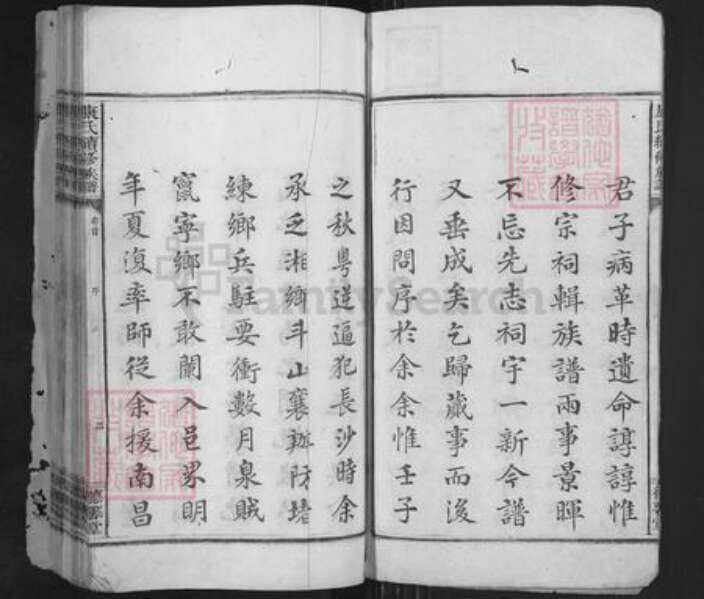 君子病革時遺命諄諄惟
修宗祠輯族譜兩事景暉
不忘先志祠宇一新今譜
又垂成矣乞歸蕆事而後
行因問序於余余惟壬子
之秋粵逆逼犯長沙時余
承乏湘鄉斗山襄辦防堵
練鄉兵駐要衝數月梟賊
竄寧鄉不敢闌入邑界明
年夏復率師從余援南昌
康氏續修族譜
卷首
序
二
FamilySearch